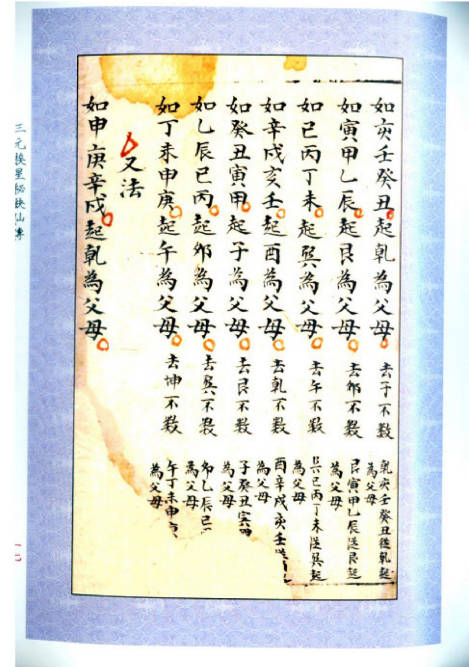 如亥壬癸丑起乾為父母 去子不數 乾亥壬癸丑從乾起
為父母
如寅甲乙辰起艮為父母 去卯不數 艮寅甲乙辰從艮起
為父母
如巳丙丁未起巽為父母 去午不數 巽巳丙丁未從巽起
為父母
如辛戌亥壬起酉為父母 去乾不數 酉辛戌亥壬從
為父母
如癸丑寅甲起子為父母 去艮不數 子癸丑寅甲
為父母
如乙辰巳丙起卯為父母 去巽不數 卯乙辰巳
為父母
如丁未申庚起午為父母 去坤不數 午丁未申
為父母
又法
如申庚辛戌起乾為父母
三元挨星祕訣仙傳